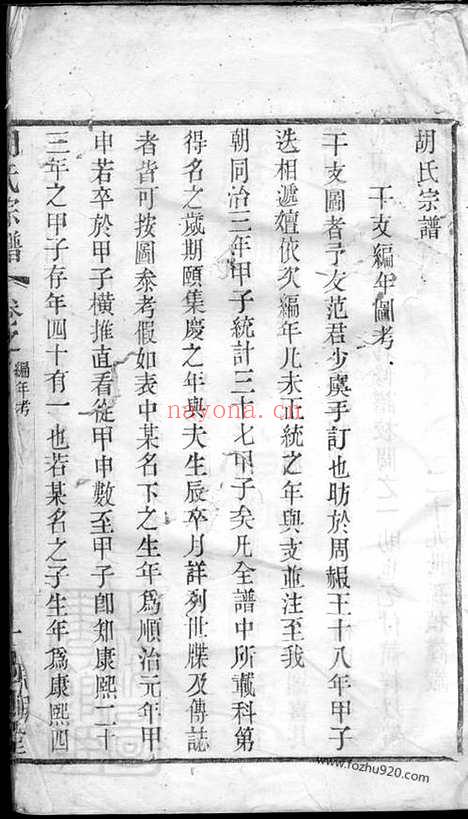 胡氏宗譜
干支編年圖考
干支圖者予友范君少虞手訂也昉於周赧王十八年甲子
迭相遞嬗依次編年凡未正統之年與支並注至我
朝同治三年甲子統計三十七甲子矣凡全譜中所載科第
得名之歲期頤集慶之年與夫生辰卒月詳列世牒及傳誌
者皆可按圖叅考假如表中某名下之生年爲順治元年甲
申若卒於甲子橫推直看從甲申數至甲子卽知康熙二十
三年之甲子存年四十有一也若某名之子生年爲康熙四
氏宗譜
編年考
nayona.cn
www.fozhu920.com